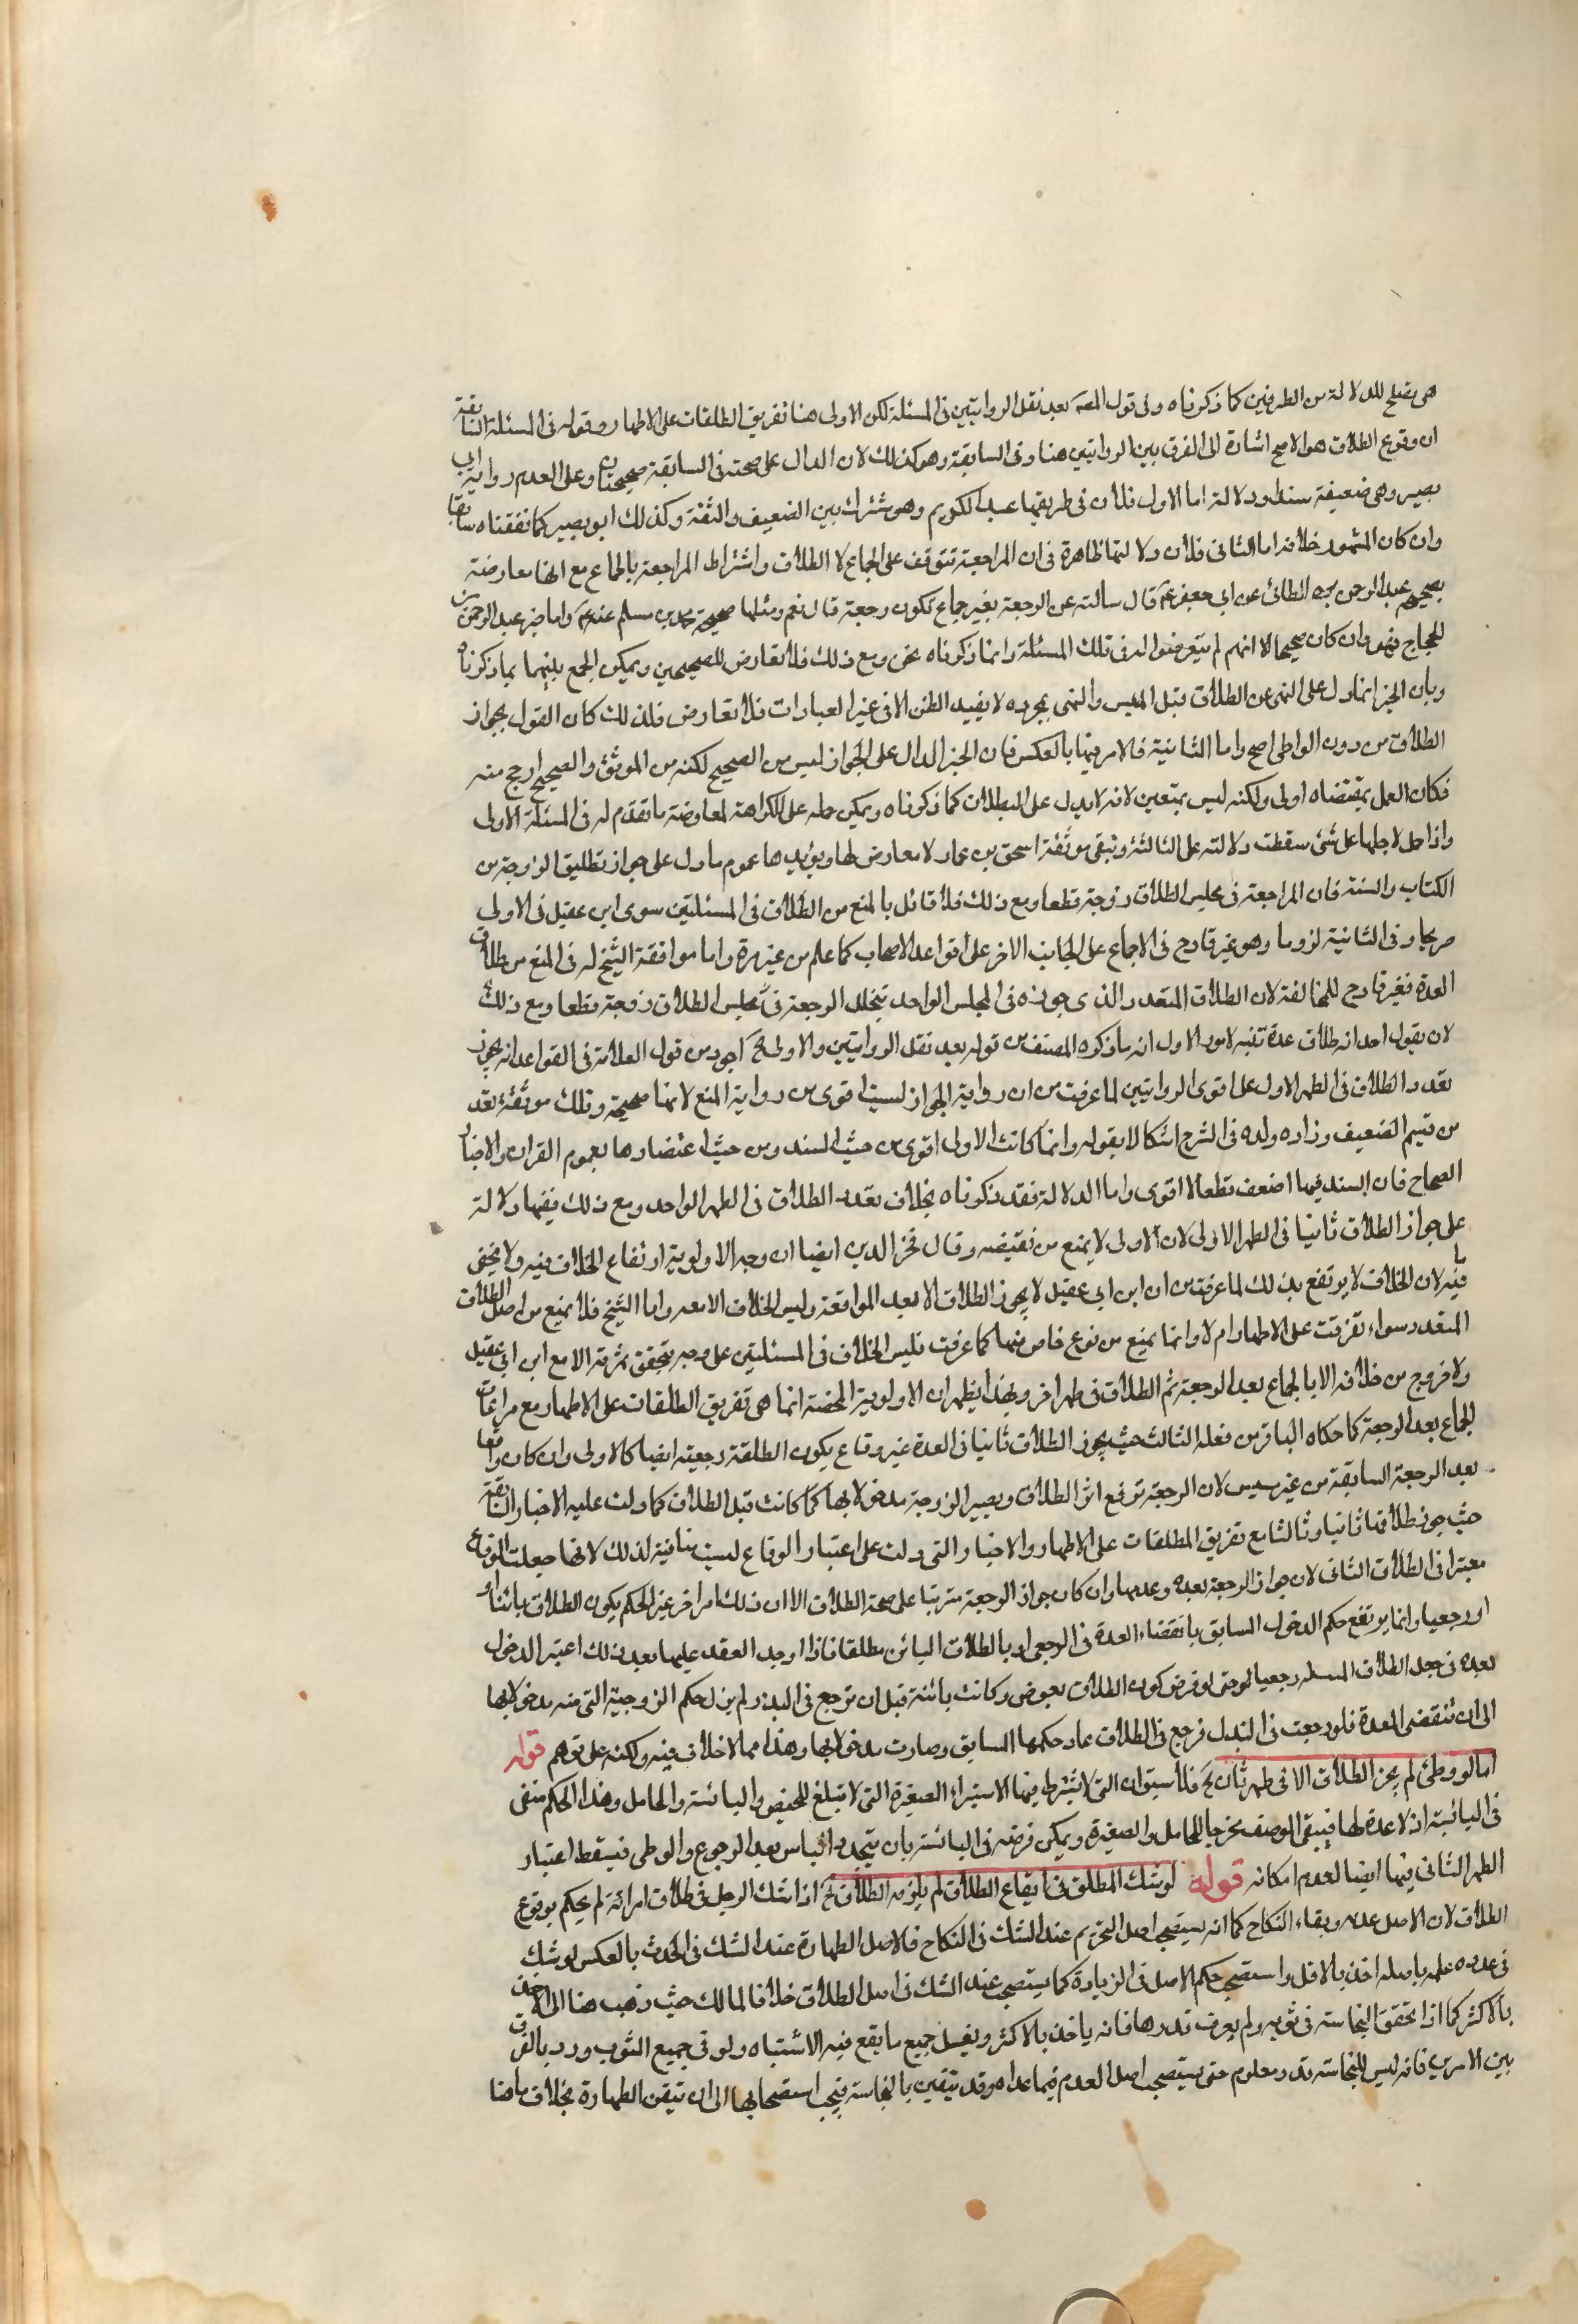 هى تصلح للدلالة من الطرفين كما ذكرناه وفى قول المصه بعد نقل الروايتين فى المسئلة لكن الاولى هنا تفريق الطلقات على الاطهار وقوله فى المسئلة السابقة
ان وقوع الطلاق هو الاصح اشارة الى الفرق بين الروايتين هنا وفى السابقة وهو كذلك لان الدال على صحته فى السابقة صحيحتان وعلى العدم رواية ابى
بصير وهى ضعيفة سندا ودلالة اما الاول فلان فى طريقها عبد الكريم وهو مشترك بين الضعيف والثقة وكذلك ابو بصير كما نفقناه سابقا
وان كان المشهور خلافه اما الثانى فلان دلالتها ظاهرة فى ان المراجعة تتوقف على الجماع لا الطلاق واشتراط المراجعة بالجماع مع انها معارضة
بصحيحة عبد الحميد الطائى عن ابى جعفر عم قال سالته عن الرجعة بغير جماع تكون رجعة قال نعم ومثلها صحيحة محمد بن مسلم عنه عم واما خبر عبد الرحمن بن
الحجاج فهو وان كان صحيحا الا انهم لم يتعرضوا له فى تلك المسئلة وانما ذكرناه نحن ومع ذلك فلا تعارض للصحيحين ويمكن الجمع بينهما بما ذكرناه
وبان الخبر انما دل على النهى عن الطلاق قبل المسيس والنهى بمجرده لا يفيد الظن الا فى غير العبارات فلا تعارض فلذلك كان القول بجواز
الطلاق من دون الواطى اصح واما الثانية فالامر فيها بالعكس فان الخبر الدال على الجواز ليس من الصحيح لكنه من الموثق والصحيح ارجح منه
فكان العمل بمقتضاه اولى ولكنه ليس بمتعين لانه لا يدل على البطلان كما ذكرناه ويمكن حمله على الكراهة لمعارضة ما تقدم له فى المسئلة الاولى
واذا حمل لاجلها على شئ سقطت دلالته على الثالثة وتبقى موثقة اسحق بن عمار لا معارض لها ويؤيدها عموم ما دل على جواز تطليق الزوجة من
الكتاب والسنة فان المراجعة فى مجلس الطلاق زوجة قطعا ومع ذلك فلا قائل بالمنع من الطلاق فى المسئلتين سوى ابن عقيل فى الاولى
صريحا وفى الثانية لزوما وهو غير قادح فى الاجماع على الجانب الاخر على قواعد الاصحاب كما علم من غير مرة واما موافقة الشيخ له فى المنع من طلاق
العدة فغير قادح للمخالفة لان الطلاق المتعدد الذى جوزه فى المجلس الواحد بتخلل الرجعة فى مجلس الطلاق زوجة قطعا ومع ذلك
لان يقول احد انه طلاق عدة تنبيه لامور الاول ان ما ذكره المصنف من قوله بعد نقل الروايتين والاولى لخ اجود من قول العلامة فى القواعد انه يجوز
تعدد الطلاق فى الطهر الاول على اقوى الروايتين لما عرفت من ان رواية الجواز ليست اقوى من رواية المنع لانها صحيحة وتلك موثقة تعد
من قسم الضعيف وزاده ولده فى الشرح اشكالا بقوله وانما كانت الاولى اقوى من حيث السند ومن حيث اعتضادها بعموم القران والاخبار
الصحاح فان السند فيها اضعف قطعا لا اقوى واما الدلالة فقد ذكرناه بخلاف تعدد الطلاق فى الطهر الواحد ومع ذلك ففيها دلالة
على جواز الطلاق ثانيا فى الطهر الاول لان الاولى لا يمنع من نقيضه وقال فخر الدين ايضا ان وجه الاولوية ارتفاع الخلاف فيه ولا يخفى ما
فيه لان الخلاف لا يرتفع بذلك لما عرفت من ان ابن ابى عقيل لا يجوز الطلاق الا بعد المواقعة وليس الخلاف الا معه واما الشيخ فلا يمنع من اصل الطلاق
المتعدد سواء تفرقت على الاطهار ام لا وانما يمنع من نوع خاص منها كما عرفت فليس الخلاف فى المسئلتين على وجه يتحقق ثمرته الا مع ابن ابى عقيل
ولا خروج من خلافه الا بالجماع بعد الرجعة ثم الطلاق فى طهر اخر وبهذا يظهر ان الاولوية المحضة انما هى تفريق الطلقات على الاطهار مع مراعات
الجماع بعد الرجعة كما حكاه الباقر من فعله الثالث حيث يجوز الطلاق ثانيا فى العدة غير وقاع يكون الطلقة رجعية ايضا كالاولى وان كان واقعا
بعد الرجعة السابقة من غير مسيس لان الرجعة ترفع اثر الطلاق ويصير الزوجة مدخولا بها كما كانت قبل الطلاق كما دلت عليه الاخبار السابقة
حيث جوز طلاقها ثانيا وثالثا مع تفريق المطلقات على الاطهار والاخبار التى دلت على اعتبار الوقاع ليست منافية لذلك لانها جعلت الوقاع
معتبرا فى الطلاق الثانى لان جواز الرجعة بعده وعدمها وان كان جواز الرجعة مترتبا على صحة الطلاق الا ان ذلك امر اخر غير الحكم بكون الطلاق بائنا
او رجعيا وانما يرتفع حكم الدخول السابق بانقضاء العدة فى الرجعى او بالطلاق البائن مطلقا فاذا اوجد العقد عليها بعد ذلك اعتبر الدخول
بعده فى جعل الطلاق رجعيا حتى لو فرض كون الطلاق بعوض وكانت بائنة قبل ان ترجع فى البذل ولم يزل حكم الزوجية التى منه مدخولا بها
الى ان تنقضى العدة فلو رجعت فى البذل فرجع فى الطلاق عاد حكمها السابق وصارت مدخولا بها وهذا مما لا خلاف فيه ولكنه على توهم قوله
اما لو وطئ لم يجز الطلاق الا فى طهر ثان لخ فلا سيق ان التى لا يشترط فيها الاستبراء الصغيرة التى لا تبلغ المحيض واليائسة والحامل وهذا الحكم منفى
فى اليائسة اذ لا عدة لها فيبقى الوصف مخرجا للحامل والصغيرة ويمكن فرضه فى اليائسة بان يتجدد الياس بعد الرجوع والوطى فيسقط اعتبار
الطهر الثانى فيها ايضا لعدم امكانه قوله لو شك المطلق فى ايقاع الطلاق لم يلزمه الطلاق لخ اذا شك الرجل فى طلاق امرائة لم يحكم بوقوع
الطلاق لان الاصل عدمه وبقاء النكاح كما انه يستصحب اصل التحريم عند الشك فى النكاح فالاصل الطهارة عند الشك فى الحدث بالعكس لو شك
فى عدده علمه باصله اخذ بالاقل واستصحب حكم الاصل فى الزيادة كما يستصحب عند الشك فى اصل الطلاق خلافا لمالك حيث ذهب هنا الى الاخذ
بالاكثر كما اذا تحقق النجاسته فى ثوبه ولم يعرف قدرها فانه ياخذ بالاكثر ويغسل جميع ما يقع فيه الاشتباه ولو فى جميع الثوب ورد بالفرق
بين الامرين فانه ليس للنجاسته قدر معلوم حتى يستصحب اصل العدم فيما عداه وقد تيقن بالنجاسته فيجب استصحابها الى ان تيقن الطهارة بخلاف ما هنا